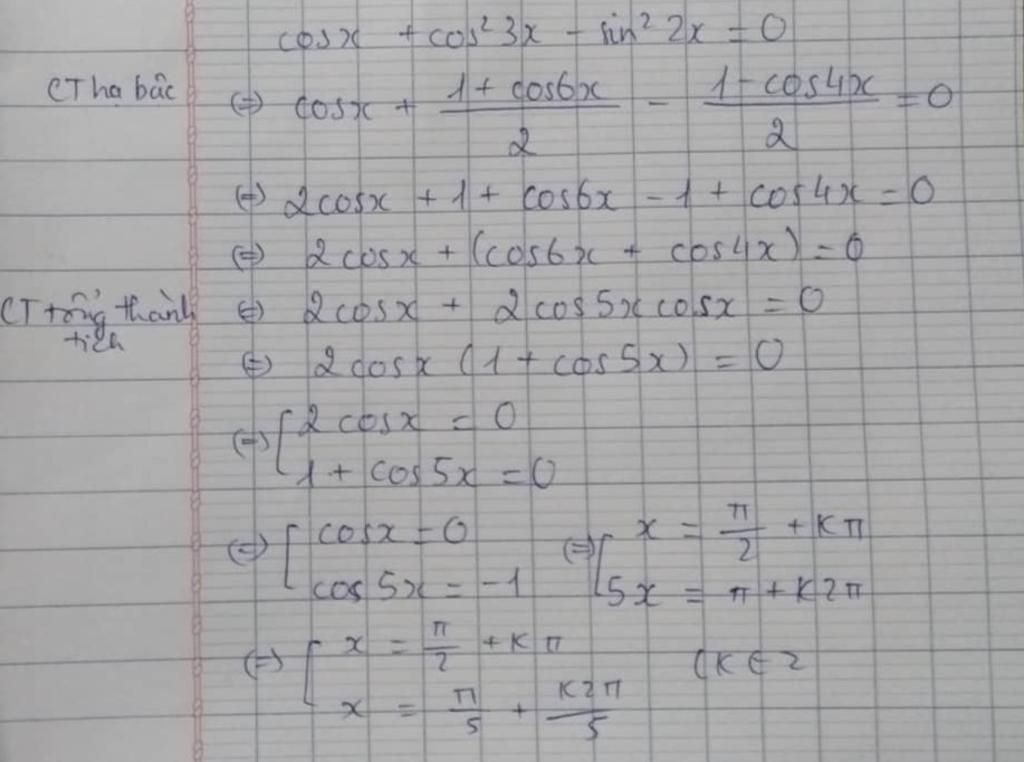 cosx + cos²3x - sin²2x = 0
CT hạ bâc (=) cosx + (1 + cos6x)/2 - (1 - cos4x)/2 = 0
(=) 2cosx + 1 + cos6x - 1 + cos4x = 0
(=) 2cosx + (cos6x + cos4x) = 0
CT tổng thành tích (=) 2cosx + 2cos5x cosx = 0
(=) 2cosx (1 + cos5x) = 0
(=) [ 2cosx = 0
1 + cos5x = 0
(=) [ cosx = 0 (=) [ x = π/2 + kπ
cos5x = -1 5x = π + k2π
(=) [ x = π/2 + kπ (k ∈ Z
x = π/5 + k2π/5